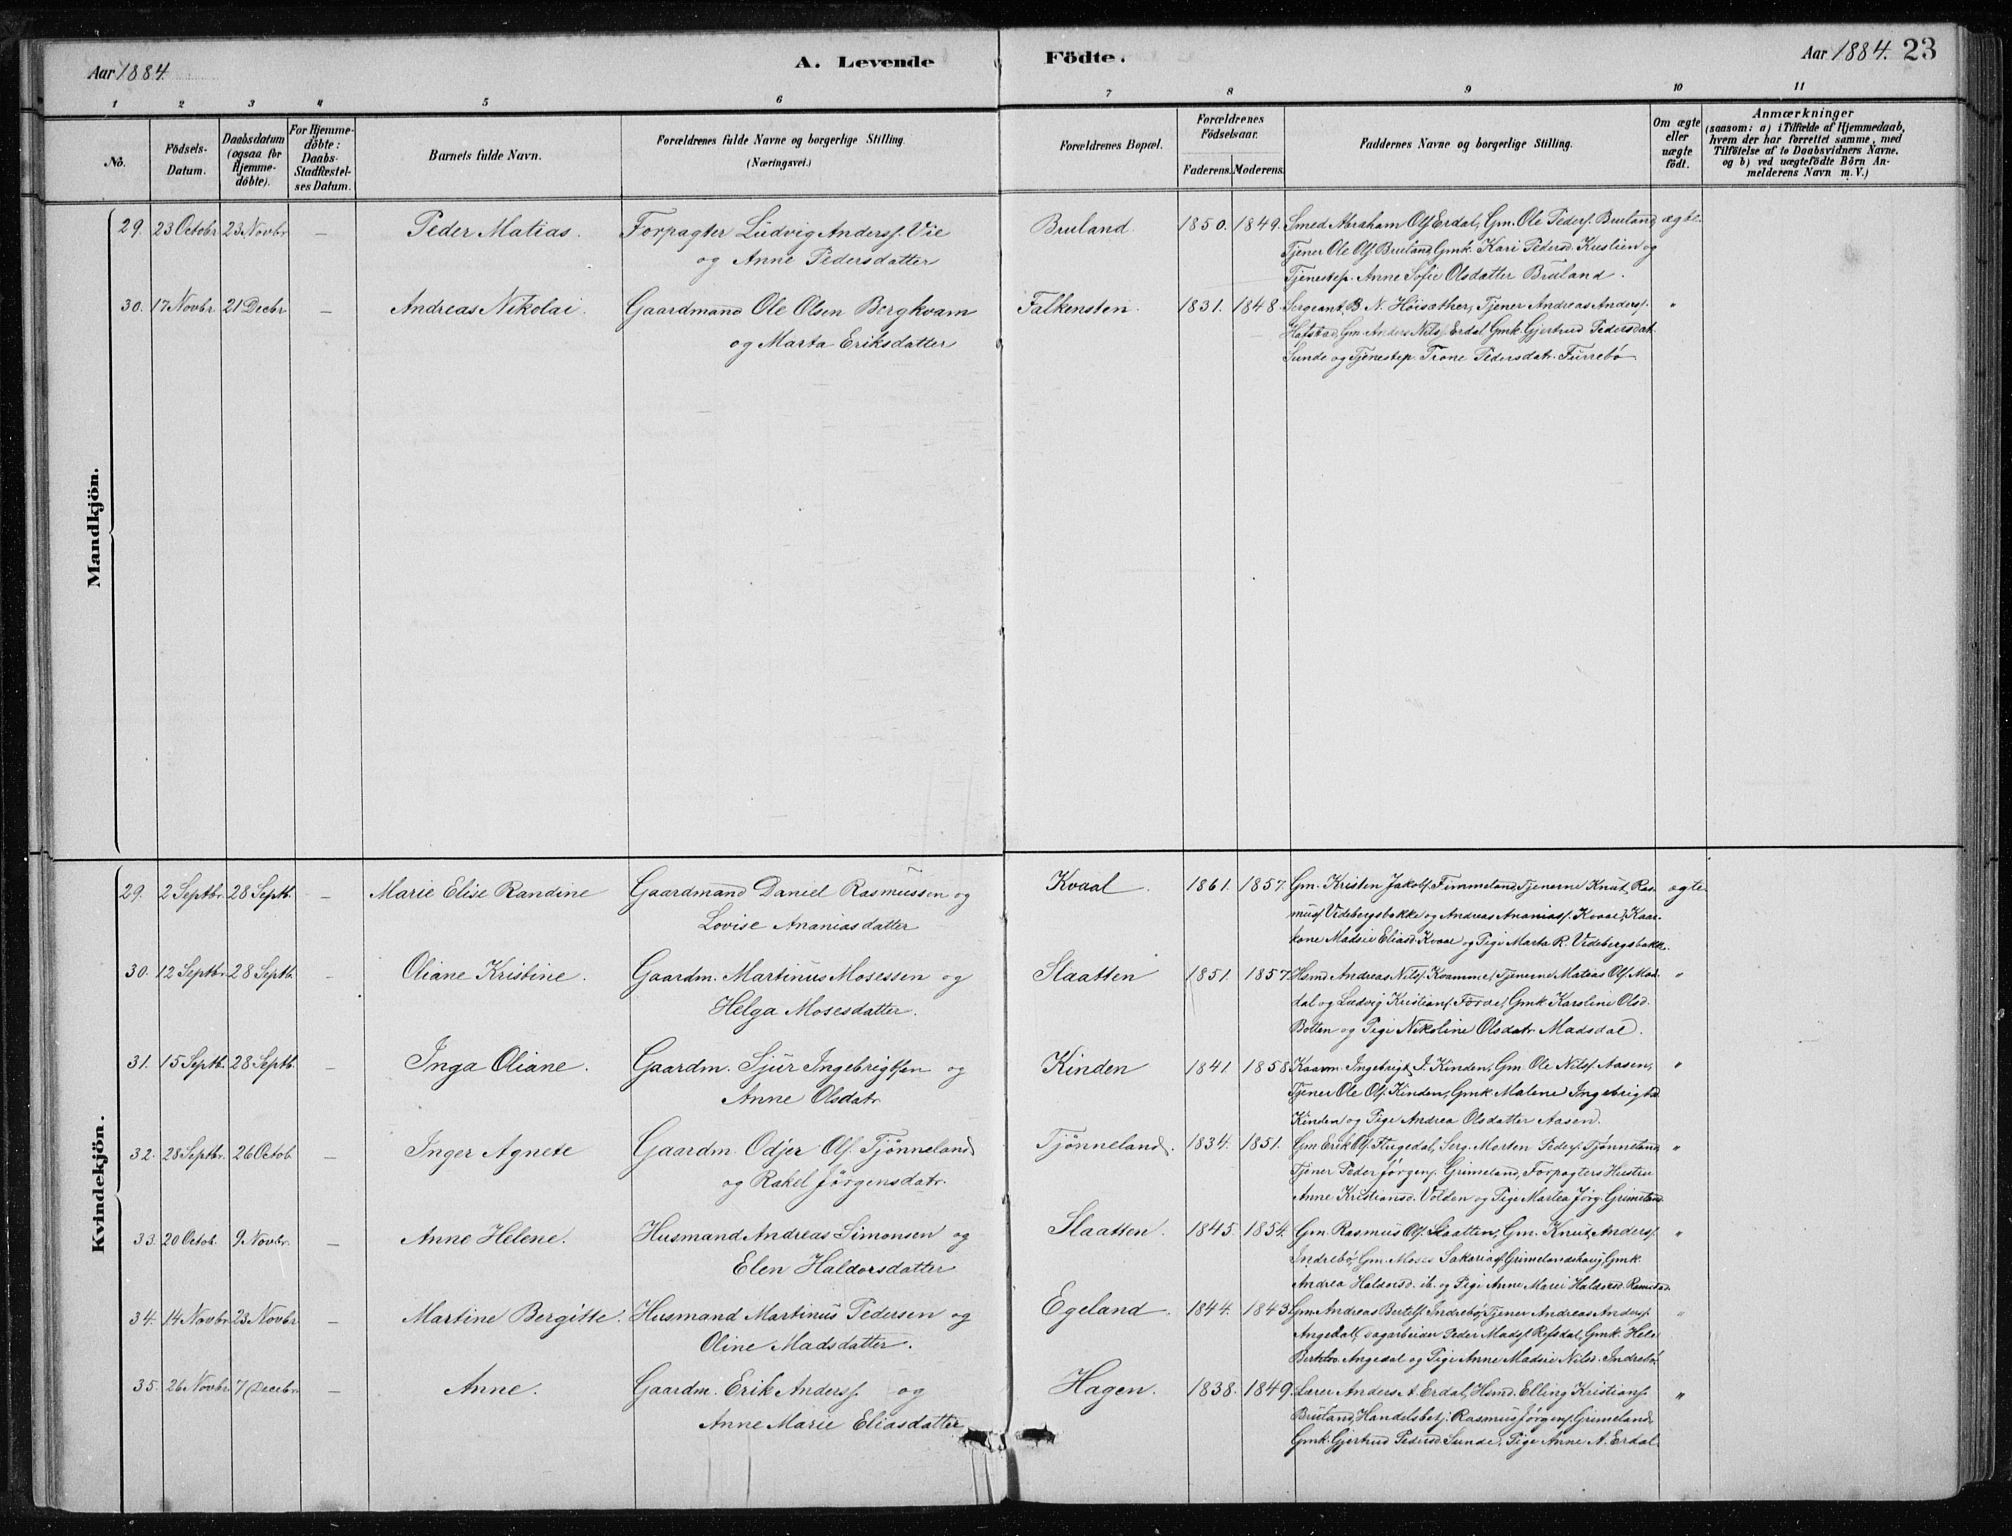 Aar 1884.
A. Levende Födte.
Aar 1884. 23
1 2 3 4 5 6 7 8 9 10 11
No.
Födsels-Datum.
Daabsdatum (ogsaa for Hjemme-döbte).
For Hjemme-döbte: Daabs-Stadfæstel-ses Datum.
Barnets fulde Navn.
Forældrenes fulde Navne og borgerlige Stilling. (Næringsvei.)
Forældrenes Bopæl.
Forældrenes Födselsaar.
Faderens. Moderens.
Faddernes Navne og borgerlige Stilling.
Om ægte eller uægte födt.
Anmærkninger
(saasom: a) i Tilfælde af Hjemmedaab,
hvem der har forrettet samme, med
Tilföielse af to Daabsvidners Navne.
og b) ved uægtefödte Börn An-
melderens Navn m. V.)
Mandkjön.
29. 23 Octobr 23 Novbr — Peder Matias. Forpagter Ludvig Anderss. Vie Bruland. 1850. 1849. Smed Abraham Ols. Erdal, Gm. Ole Peders. Bruland, ægte.
og Anne Pedersdatter Tjener Ole Ols. Bruland, Gmk. Kari Pedersd. Kustien og
Tjenestep. Anne Sofie Olsdatter Bruland.
30. 17 Novbr 21 Decbr — Andreas Nikolai. Gaardmand Ole Olsen Borgkvam Falkensten. 1831. 1848 Sergeant B. N. Höisæther, Tjener Andreas Anderss. "
og Marta Eriksdatter Hafstad, Gm. Anders Nils. Erdal, Gmk. Gjertrud Pedersdat.
Sunde og Tjenestep. Trone Pedersdatr. Furrebö
Kvindekjön.
29. 2 Septbr. 28 Septb. — Marie Elise Randine Gaardmand Daniel Rasmussen og Kvaal. 1861. 1857. Gm. Kristen Jakobs. Fimmeland, Tjenerne Knut Ras- ægte
Lovise Ananiasdatter muss. Videbergsbakke og Andreas Ananiass. Kvaal, Kaar-
kone Madsie Eliasd. Kvaal og Pige Marta R. Videbergsbakk.
30. 12 Septbr 28 Septb. — Oliane Kristine. Gaardm. Martinus Mosessen og Slaatten 1851. 1857. Hsmd. Andreas Nils. Kvamme, Tjenerne Matias Ols. Mads- "
Helga Mosesdatter. dal og Ludvig Kristians. Forde, Gmk. Karoline Olsd.
Bolten og Pige Nikoline Olsdatr Madsdal.
31. 15 Septb. 28 Septb. — Inga Oliane. Gaardm. Sjur Ingebrigtsen og Kinden 1841 1858 Kaarm. Ingebrigt S. Kinden, Gm. Ole Nils. Aasen, "
Anne Olsdatr Tjener Ole Ols. Kinden, Gmk. Malene Ingebrigtsd.
Kinden og Pige Andrea Olsdatter Aasen.
32. 28 Septbr. 26 Octob. — Inger Agnete Gaardm. Odjer Ols. Tjönneland Tjönneland. 1834. 1851. Gm. Erik Ols. Flugedal, Serg. Morten Peders. Tjönneland, "
og Rakel Jörgensdatr. Tjener Peder Jörgens. Grimeland, Forpagters Hustru
Anne Kristiansd. Volden og Pige Martea Jörg. Grimeland.
33. 20 Octob. 9 Novbr. — Anne Helene. Husmand Andreas Simonsen og Slaatten. 1845. 1854. Gm. Rasmus Ols. Slaatten, Gm. Knut Anderss. "
Elen Haldorsdatter Indrebö, Gm. Moses Sakariass. Grimelandshaug, Gmk.
Andrea Haldorsd. ib. og Pige Anne Marie Haldorsd.
34. 14 Novbr 23 Novbr — Martine Bergitte. Husmand Martinus Pedersen og Egeland. 1844. 1843. Gm. Andreas Bertels. Indrebö, Tjener Andreas Anderss. "
Oline Madsdatter. Angedal, Dagarbeider Peder Mads. Refsdal, Gmk. Hele
Angedal og Pige Anne Madsie Nilsd. Indrebö
35. 26 Novbr 7 Decebr. — Anne. Gaardm. Erik Anderss. og Hagen. 1838. 1849. Lærer Anders A. Erdal, Hsmd. Elling Kristians. "
Anne Marie Eliasdatter Bruland, Handelsbetj. Rasmus Jörgens. Grimeland,
Gmk. Gjertrud Pedersd. Sunde, Pige Anne A. Erdal.